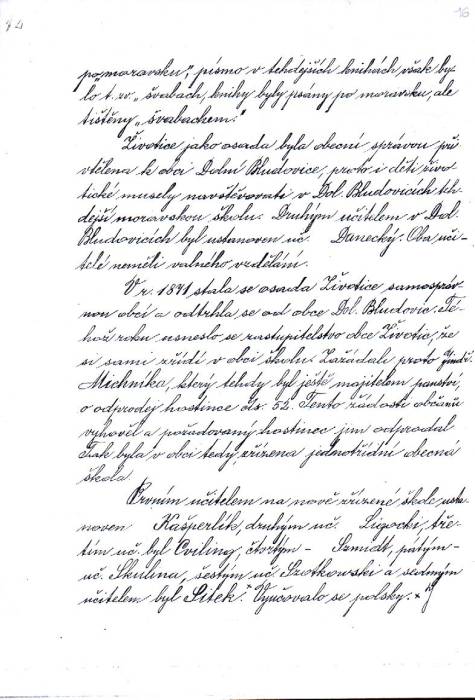 16
po„moravsku", písmo v tehdejších knihách však by-
lo t. zv. „švabach, knihy byly psány po moravsku, ale
tištěny „švabachem."
Životice jako osada byla obecní správou při
vtělena k obci Dolní Bludovice, proto i děti živo
tické musely navštěvovati v Dol. Bludovicích teh
dejší moravskou školu. Druhým učitelem v Dol.
Bludovicích byl ustanoven uč. Danecký. Oba uči-
telé neměli valného vzdělání.
V r. 1871 stala se osada Životice samospráv
nou obcí a odtrhla se od obce Dol. Bludovic. Té-
hož roku usneslo se zastupitelstvo obce Životic, že
si sami zřídí v obci školu. Zažádali proto
Michnika, který tehdy byl ještě majitelem panství,
o odprodej hostince čís. 52. Tento žádosti občanů
vyhověl a požadovaný hostinec jim odprodal
Tak byla v obci tedy zřízena jednotřídní obecná
škola.
Prvním učitelem na nově zřízené škole usta
noven Kašperlík, druhým uč. Ligocki, tře-
tím uč. byl Cviling, čtvrtým – Szmidt, pátým –
uč. Skulina, šestým uč. Szotkowski a sedmým
učitelem byl Sitek. Vyučovalo se polsky. ×